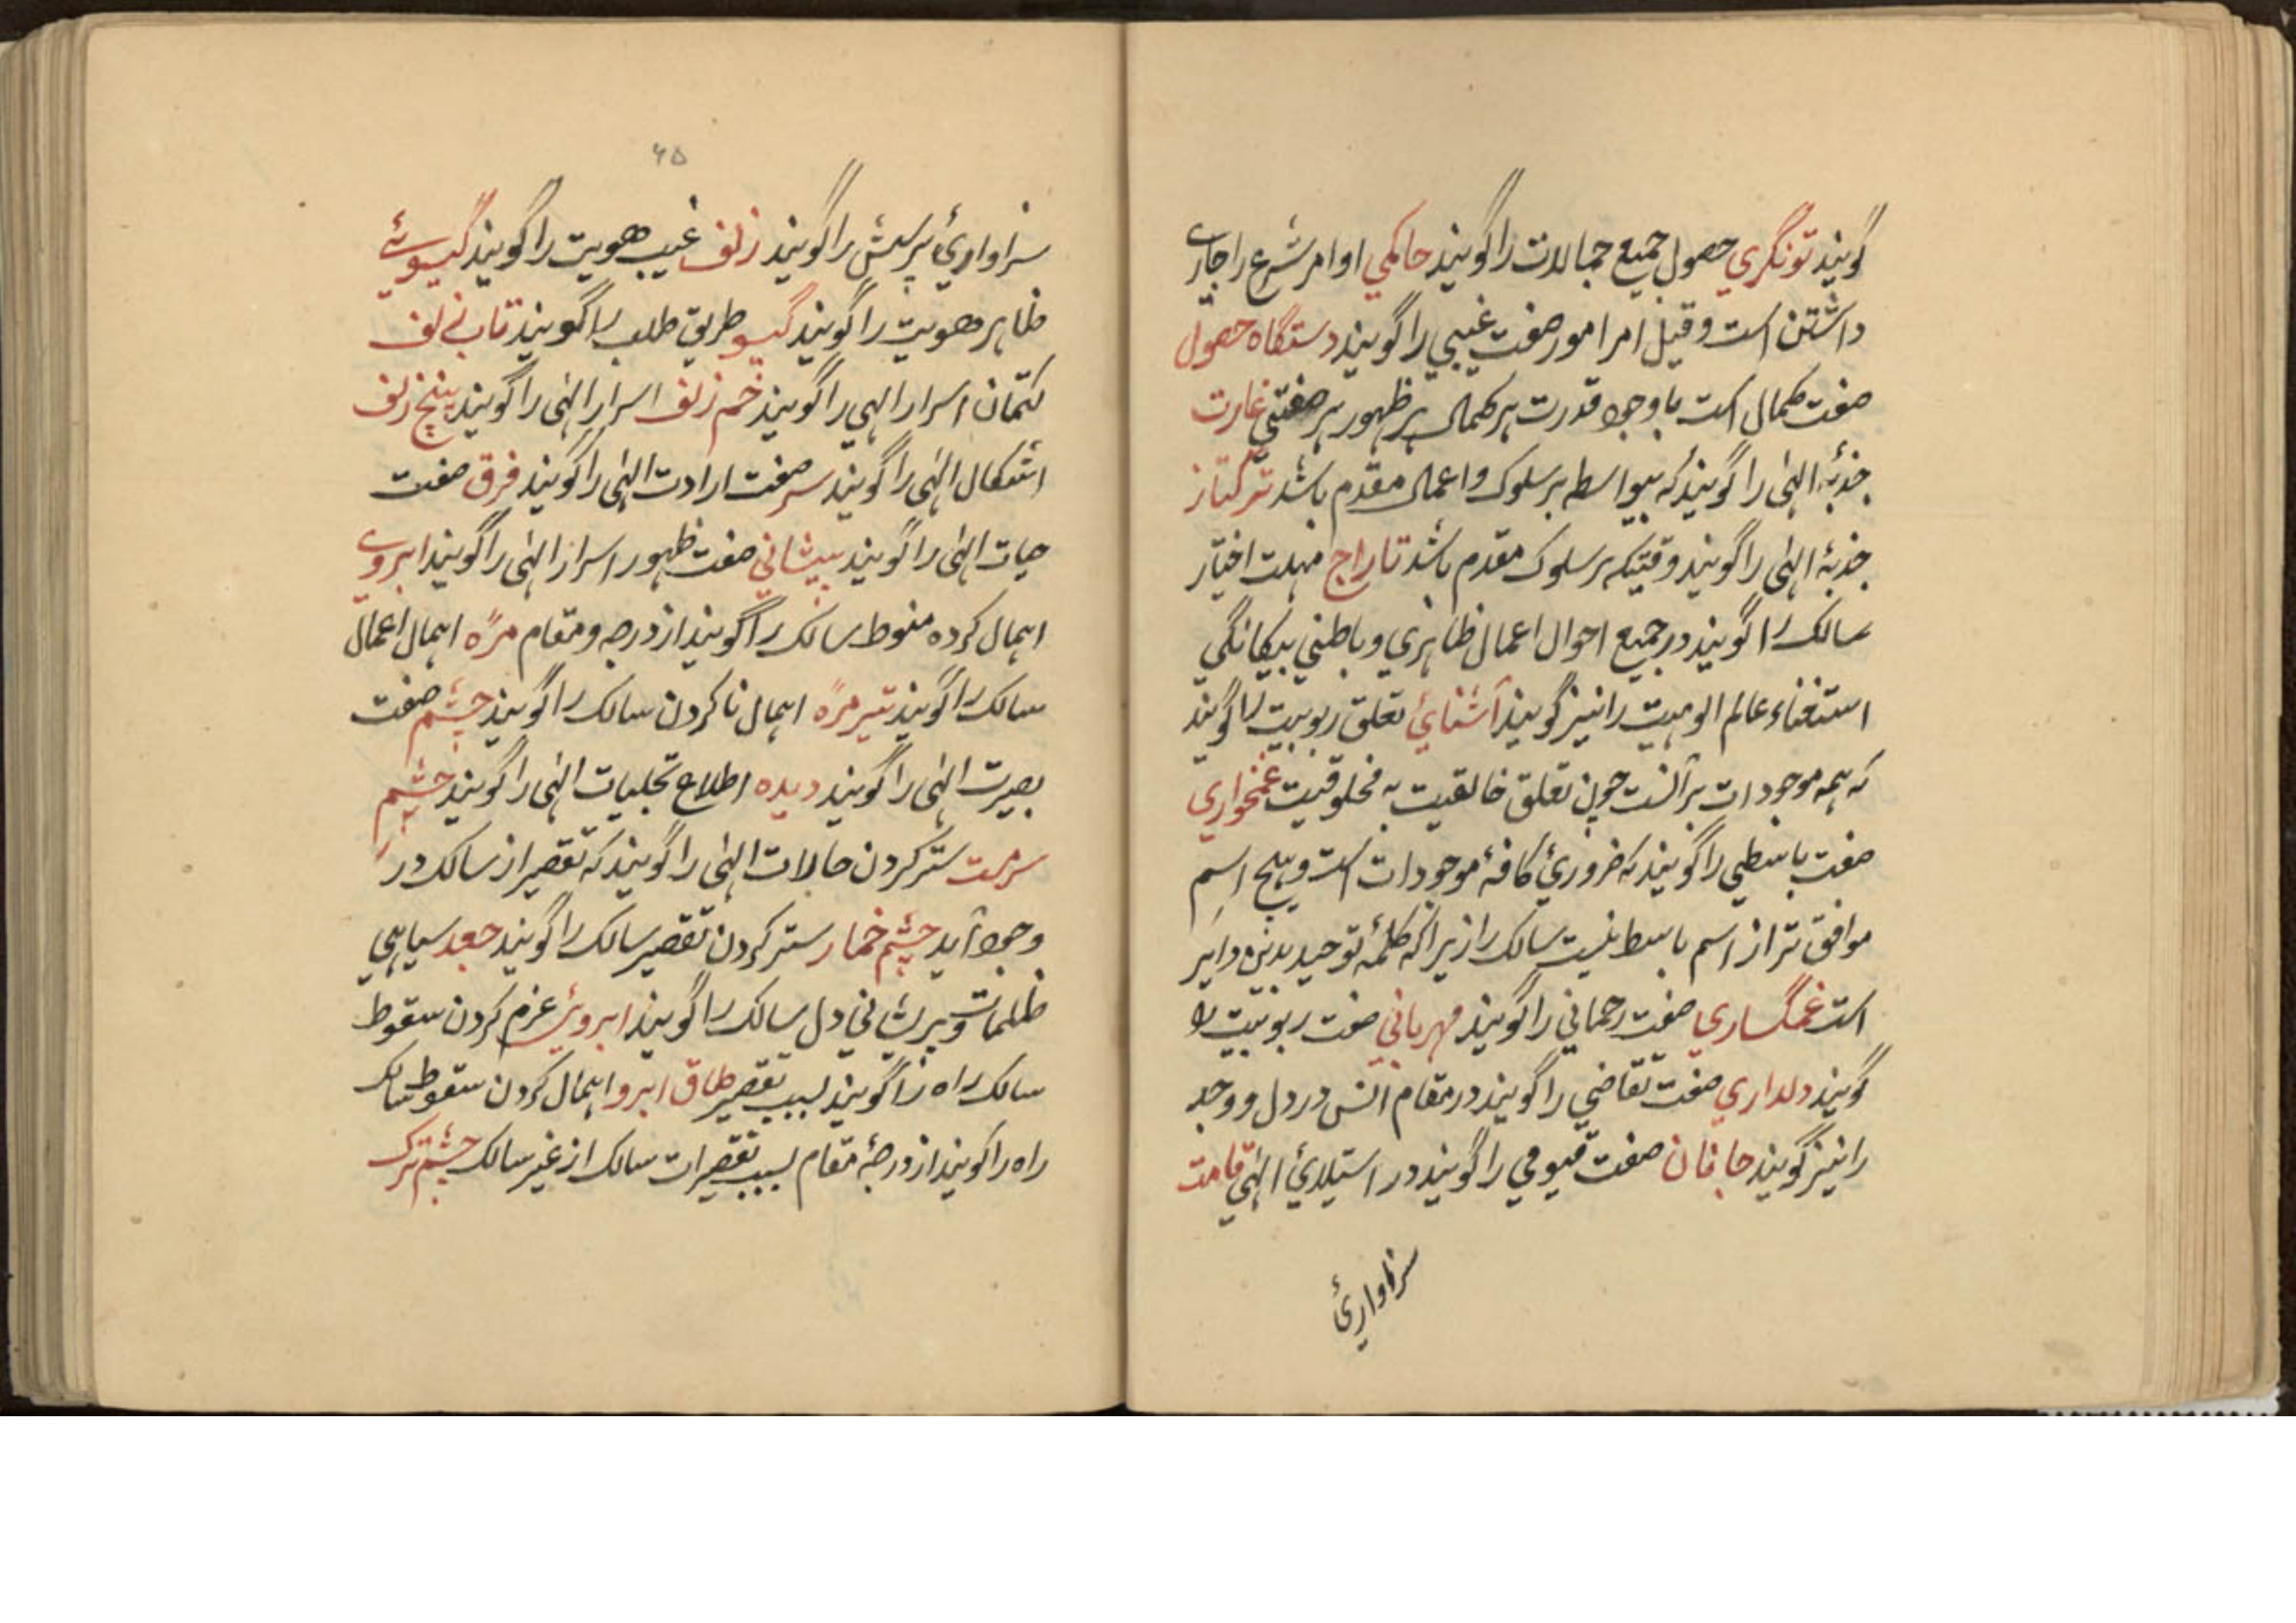 گویند تونگری حصول جمیع جمالات را گویند حاکمی اوامر شرع را جاری
داشتن است و قیل امر امور صفت غیبی را گویند دستگاه حصول
صفت کمال است با وجود قدرت بر کمال بر ظهور هر صفتی غارت
جذبهٔ الهی را گویند که بیواسطه بر سلوک و اعمال مقدم باشد ترکتاز
جذبهٔ الهی را گویند وقتیکه بر سلوک مقدم باشد تاراج مهلت اختیار
سالک را گویند در جمیع احوال اعمال ظاهری و باطنی بیکانگی
استغناء عالم الوهیت را نیز گویند آشنایی تعلق ربوبیت را گویند
که بهمه موجودات بر آنست چون تعلق خالقیت به مخلوقیت غمخواری
صفت باسطی را گویند که ضروریٔ کافهٔ موجودات است و هیچ اسم
موافق تر از اسم باسط نیست سالک را زیرا که کلمهٔ توحید بدین دایر
است غمگساری صفت رحمانی را گویند مهربانی صفت ربوبیت را
گویند دلداری صفت تقاضی را گویند در مقام انس در دل و وجد
را نیز گویند جانان صفت قیومی را گویند در استیلایٔ الهی قامت
سزاواریٔ
۴۵
سزاواریٔ پرستش را گویند زلف غیب هویت را گویند گیسوئے
ظاهر هویت را گویند گیسو طریق طلب را گویند تاب زلف
کتمان اسرار الهی را گویند خم زلف اسرار الهی را گویند پیچ زلف
اشکال الهی را گویند سر صفت ارادت الهی را گویند فرق صفت
حیات الهی را گویند پیشانی صفت ظهور اسرار الهی را گویند ابروی
اهمال کرده سالک را گویند از درجه و مقام مژه اهمال اعمال
سالک را گویند تیر مژه اهمال ناکردن سالک را گویند چشم صفت
بصیرت الهی را گویند دیده اطلاع تجلیات الهی را گویند چشم
سرمست ستر کردن حالات الهی را گویند که تقصیر از سالک در
وجود آید چشم خمار ستر کردن تقصیر سالک را گویند جعد سیاهی
ظلمات و پریشانی دل سالک را گویند ابروئ عزم کردن سقوط
سالک راه را گویند بسبب تقصیر طاق ابرو اهمال کردن سقوط سالک
راه را گویند از درجهٔ مقام بسبب تقصیرات سالک از غیر سالک چشم ترک